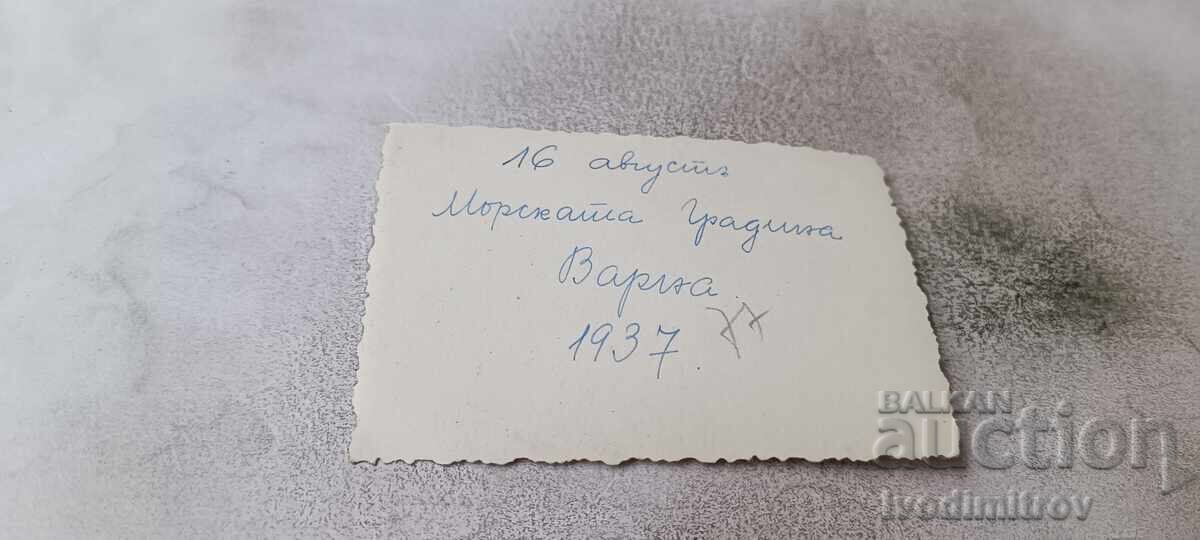 16 августъ
Морската Градина
Варна
1937 77
BALKAN
auction
ivodimitrov